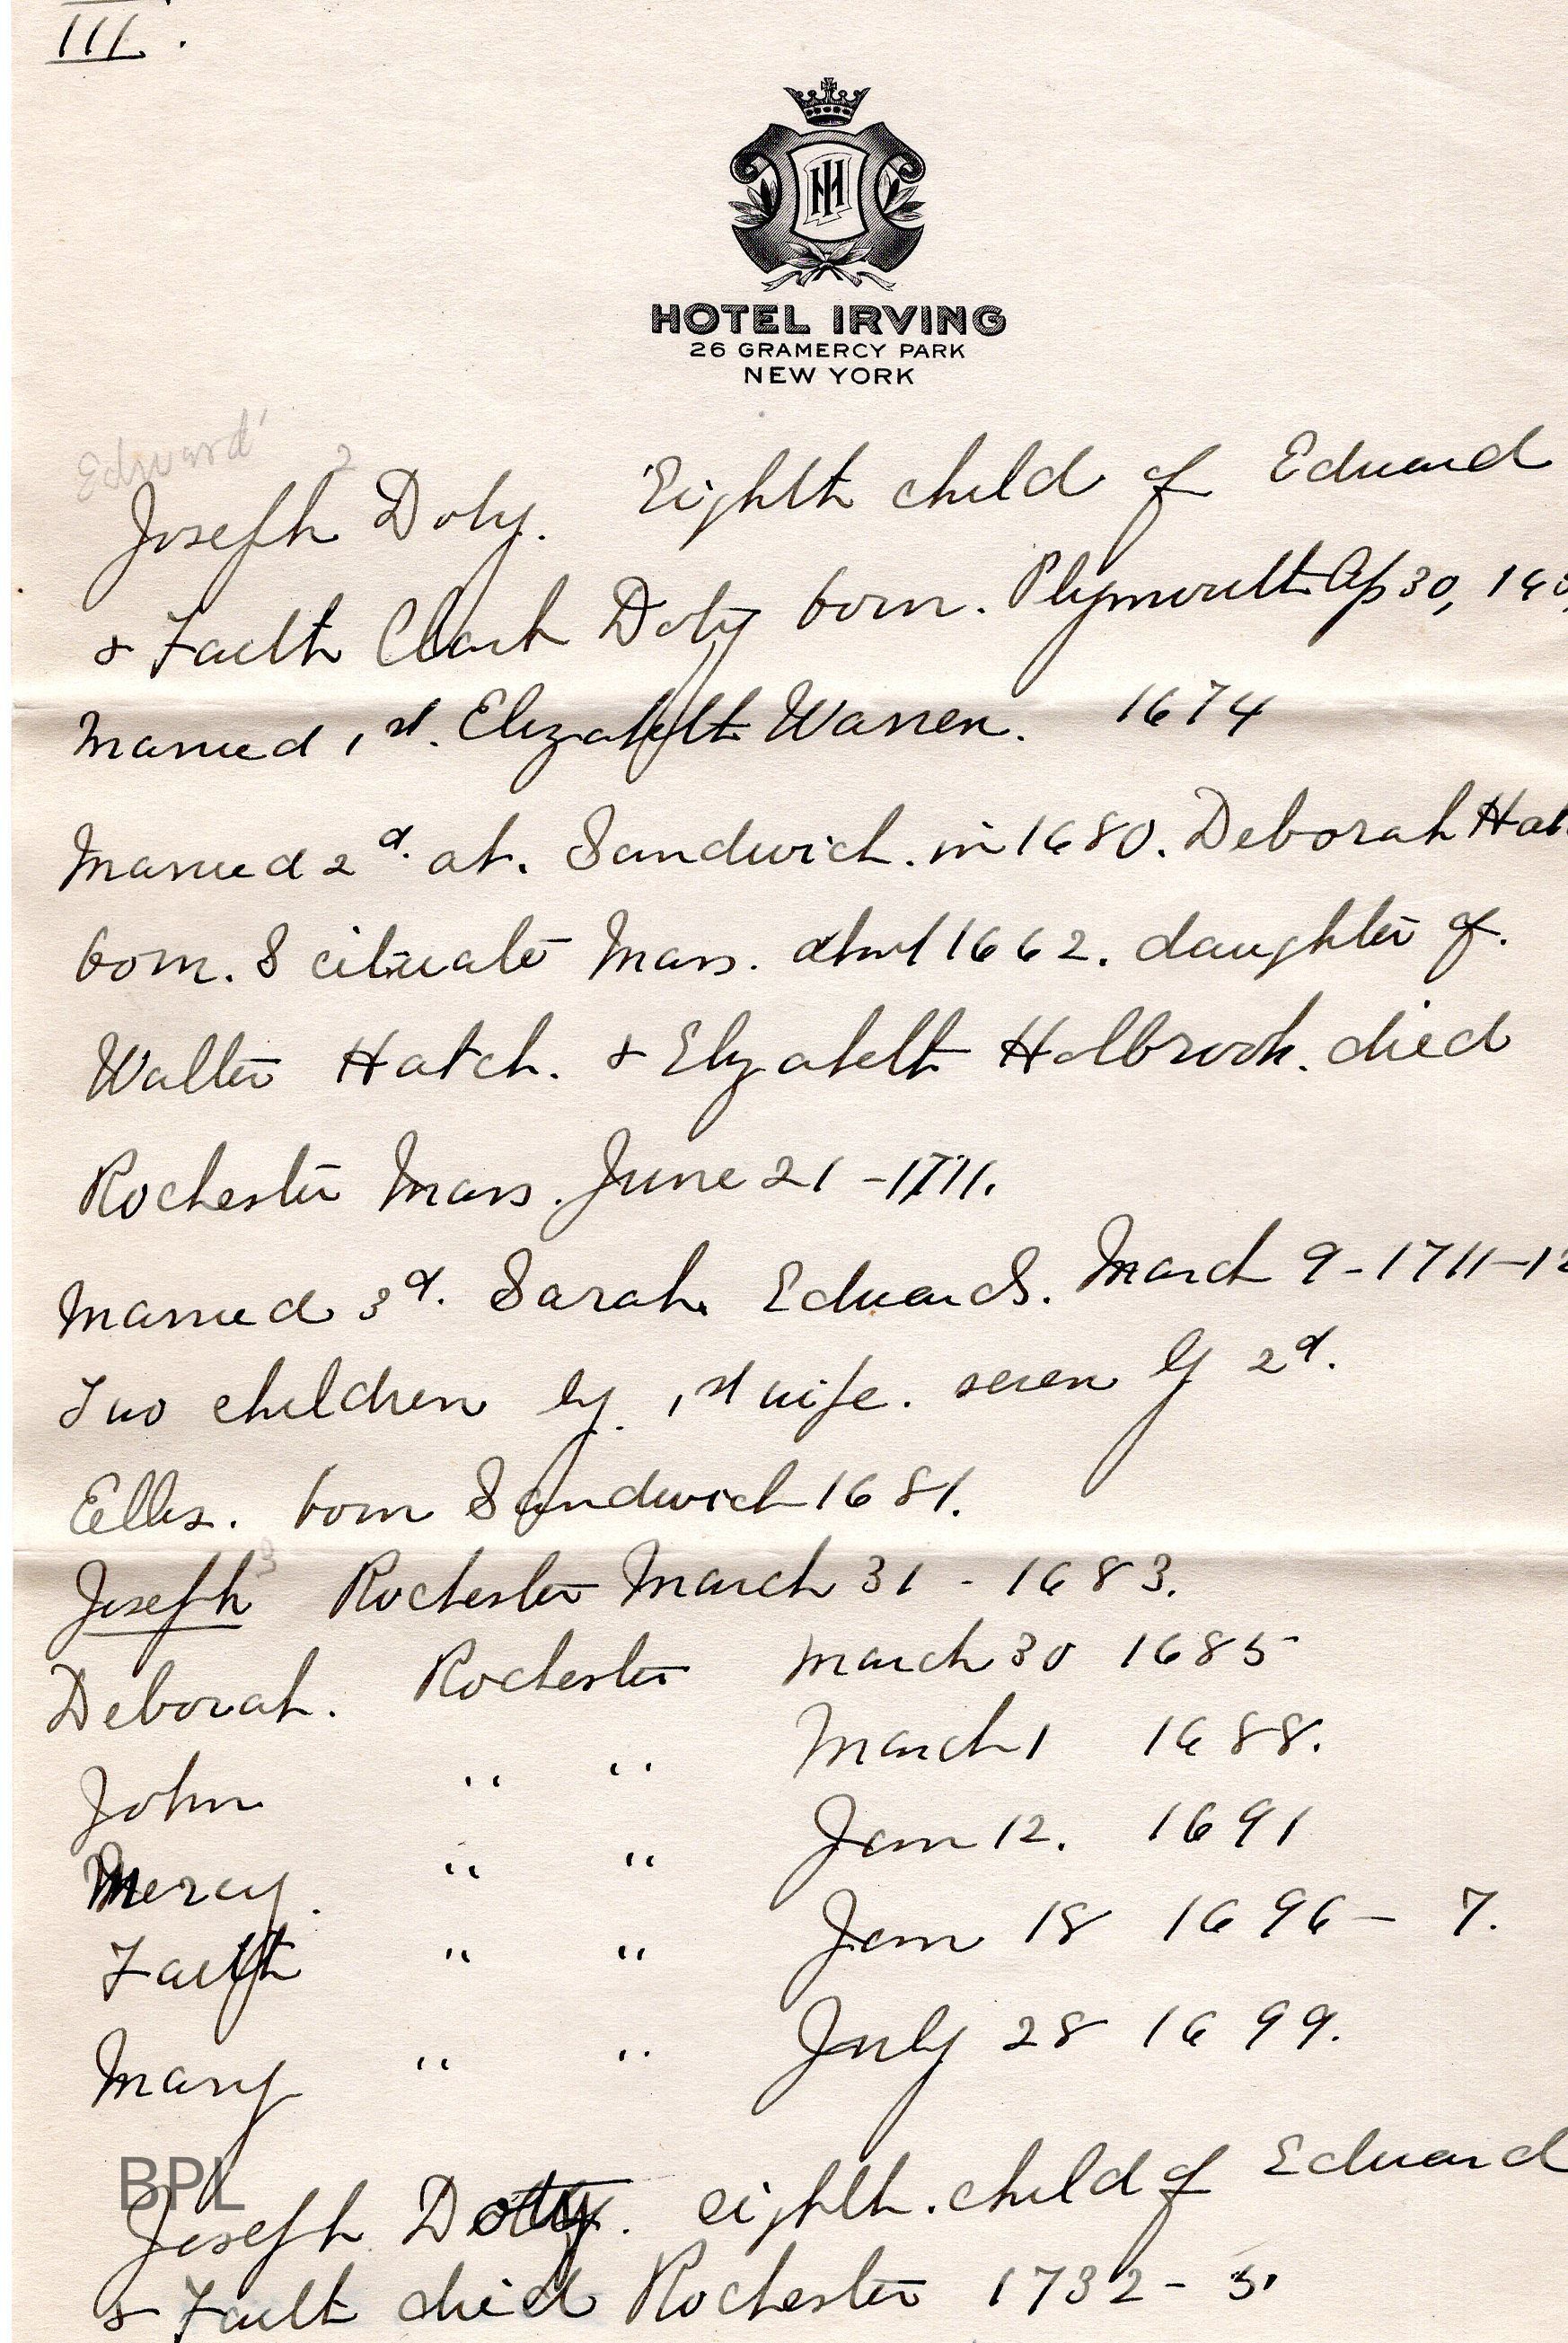 III.
HOTEL IRVING
26 GRAMERCY PARK
NEW YORK
Edward'
2
Joseph Doty. Eighth child of Edward
& Faith Clark Doty born. Plymouth Ap 30,
Married 1st. Elizabeth Warren. 1674
Married 2d. at. Sandwich. in 1680. Deborah Hat
born. Scituate Mass. about 1662. daughter of.
Walter Hatch. & Elizabeth Holbrook. died
Rochester Mass. June 21 - 1711.
Married 3d. Sarah Edwards. March 9 - 1711-12
Two children by 1st wife. seven by 2d.
Ellis. born Sandwich 1681.
Joseph 3 Rochester March 31 - 1683.
Deborah. Rochester March 30 1685
John " " March 1 1688.
Mercy. " " Jan 12. 1691
Faith " " Jan 18 1696 - 7.
Mary " " July 28 1699.
BPL
Joseph Doty. eighth. child of Edward
& Faith died Rochester 1732 - 3.